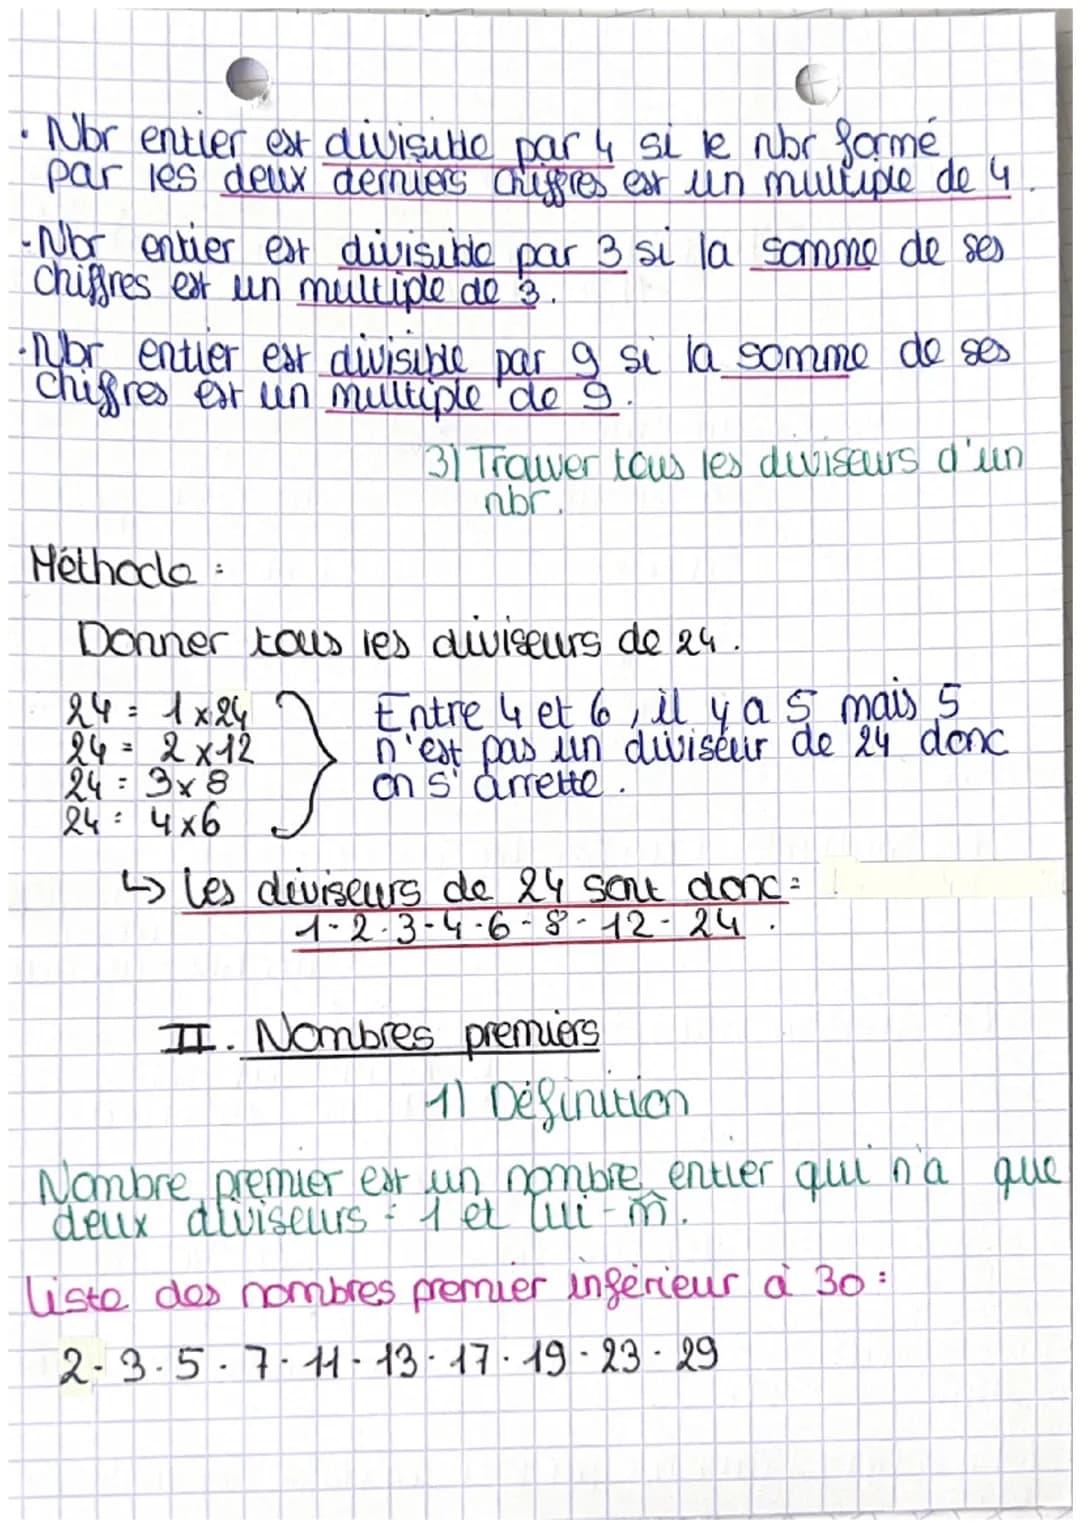 · Nbr entier est divisible par 4 si le nbr formé
par les deux derniers chiffres est un multiple de 4.
- Nbr entier est divisible par 3 si la somme de ses
chiffres est un multiple de 3.
- Nbr entier est divisible par 9 si la somme de ses
chiffres est un multiple de 9.
3) Trouver tous les diviseurs d'un
nbr.
Méthode :
Donner tous les diviseurs de 24.
24 = 1 x 24
24 = 2 x 12
24 = 3 x 8
24 = 4 x 6
Entre 4 et 6, il y a 5 mais 5
n'est pas un diviseur de 24 donc
on s'arrette.
↳ Les diviseurs de 24 sont donc =
1 - 2 - 3 - 4 - 6 - 8 - 12 - 24 .
II. Nombres premiers
1) Définition
Nombre premier est un nombre entier qui n'a que
deux diviseurs : 1 et lui - m̂.
Liste des nombres premier inférieur à 30 :
2 - 3 - 5 - 7 - 11 - 13 - 17 - 19 - 23 - 29